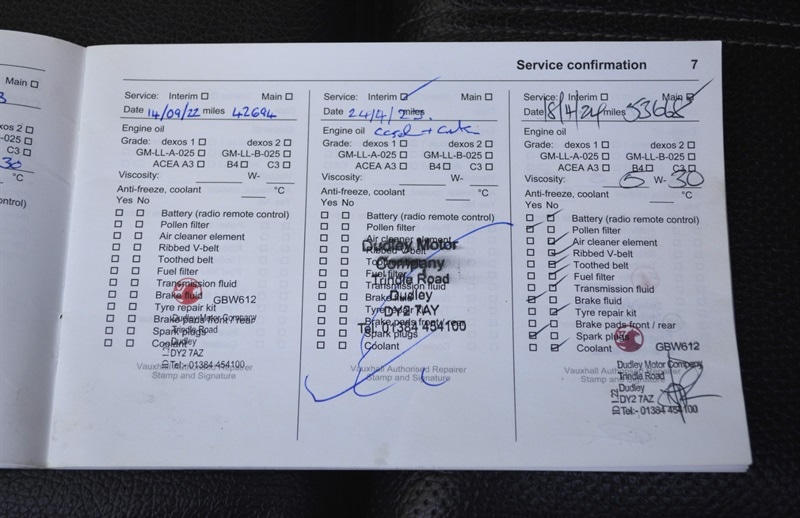 Service confirmation 7
Main
dexos 2
-025
C3
30
°C
ntrol)
Service: Interim Main
Date 14/09/22 miles 42694
Engine oil
Grade: dexos 1 dexos 2
GM-LL-A-025 GM-LL-B-025
ACEA A3 B4 C3
Viscosity: W-
Anti-freeze, coolant °C
Yes No
Battery (radio remote control)
Pollen filter
Air cleaner element
Ribbed V-belt
Toothed belt
Fuel filter
Transmission fluid
Brake fluid
GBW612
Tyre repair kit
Brake pads front / rear
Spark plugs
Coolant
Dudley Motor Company
Trindle Road
Dudley
DY2 7AZ
Tel:- 01384 454100
Vauxhall Authorised Repairer
Stamp and Signature
Service: Interim Main
Date 24/4/23. miles
Engine oil
Grade: dexos 1 dexos 2
GM-LL-A-025 GM-LL-B-025
ACEA A3 B4 C3
Viscosity: W-
Anti-freeze, coolant °C
Yes No
Battery (radio remote control)
Pollen filter
Air cleaner element
Ribbed V-belt
Toothed belt
Fuel filter
Transmission fluid
Brake fluid
Tyre repair kit
Brake pads front / rear
Spark plugs
Coolant
Dudley Motor
Company
Trindle Road
Dudley
DY2 7AY
Tel: 01384 454100
Vauxhall Authorised Repairer
Stamp and Signature
Service: Interim Main
Date 18/4/24 miles 53668
Engine oil
Grade: dexos 1 dexos 2
GM-LL-A-025 GM-LL-B-025
ACEA A3 B4 C3
Viscosity: 0 W- 30
Anti-freeze, coolant °C
Yes No
Battery (radio remote control)
Pollen filter
Air cleaner element
Ribbed V-belt
Toothed belt
Fuel filter
Transmission fluid
Brake fluid
Tyre repair kit
Brake pads front / rear
Spark plugs
Coolant
GBW612
Dudley Motor Company
Trindle Road
Dudley
DY2 7AZ
Tel:- 01384 454100
Vauxhall Authorised Repairer
Stamp and Signature